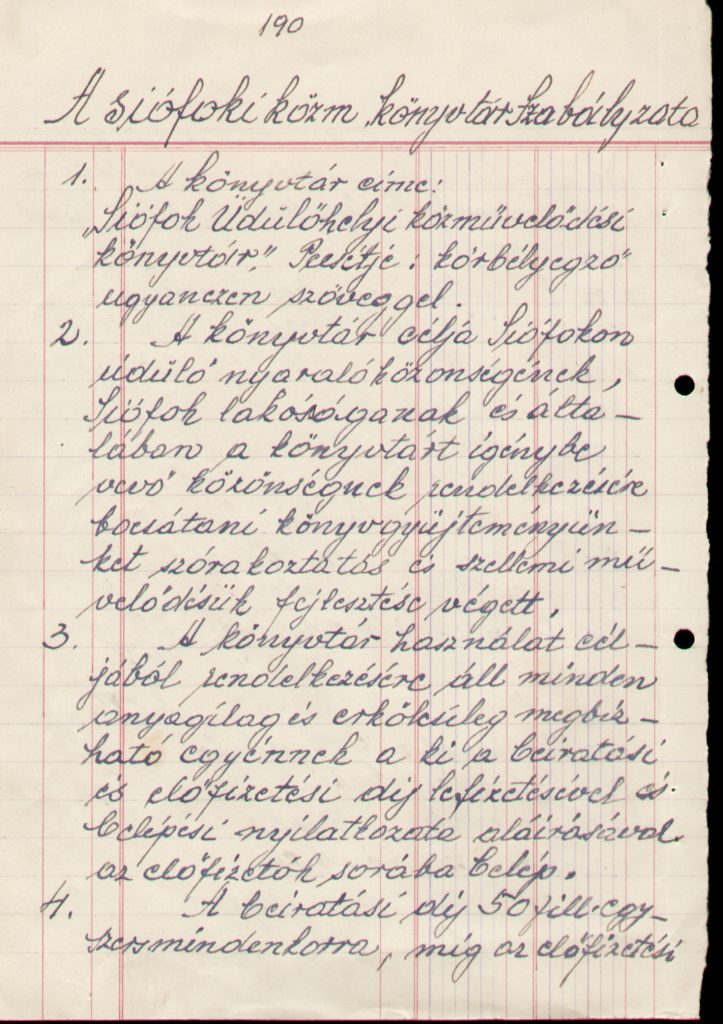 190
A siófoki közm. könyvtár szabályzata
1. A könyvtár címe:
„Siófok Üdülőhelyi közművelődési
könyvtár." Pecsétje: körbélyegző
ugyanezen szöveggel.
2. A könyvtár célja Siófokon
üdülő nyaralóközönségének,
Siófok lakóságanak és álta-
lában a könyvtárt igénybe
vevő közönségnek rendelkezésére
bocsátani könyvgyüjteményün-
ket szórakoztatás és szellemi mü-
velődésük fejlesztése végett.
3. A könyvtár használat cél-
jából rendelkezésére áll minden
anyagilag és erkölcsileg megbiz-
ható egyénnek a ki a beiratási
és előfizetési dij lefizetésével és
belépési nyilatkozata aláirásával
az előfizetők sorába belép.
4. A beiratási dij 50 fill. egy-
szersmindenkorra, mig az előfizetési